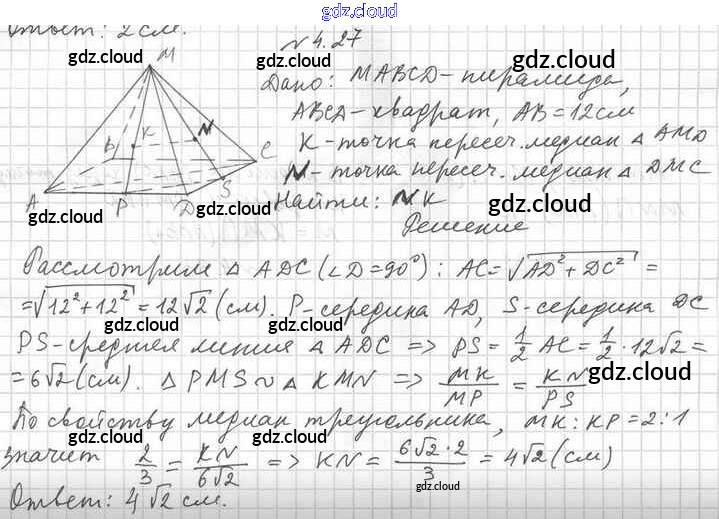 gdz.cloud
Ответ: 2 см.
№ 4.27
Дано: MABCD - пирамида,
ABCD - квадрат, AB = 12 см
K - точка пересеч. медиан △ AMD
N - точка пересеч. медиан △ DMC
Найти: NK
Решение
M
B K N C
A P D S
Рассмотрим △ ADC (∠D = 90°): AC = √(AD² + DC²) =
= √(12² + 12²) = 12√2 (см). P - середина AD, S - середина DC
PS - средняя линия △ ADC => PS = 1/2 AC = 1/2 · 12√2 =
= 6√2 (см). △ PMS ~ △ KMN => MK/MP = KN/PS
По свойству медиан треугольника, MK : KP = 2 : 1
Значит 2/3 = KN/6√2 => KN = 6√2 · 2/3 = 4√2 (см)
Ответ: 4√2 см.
gdz.cloud
gdz.cloud
gdz.cloud
gdz.cloud
gdz.cloud
gdz.cloud
gdz.cloud
gdz.cloud
gdz.cloud
gdz.cloud
gdz.cloud
gdz.cloud
gdz.cloud
gdz.cloud